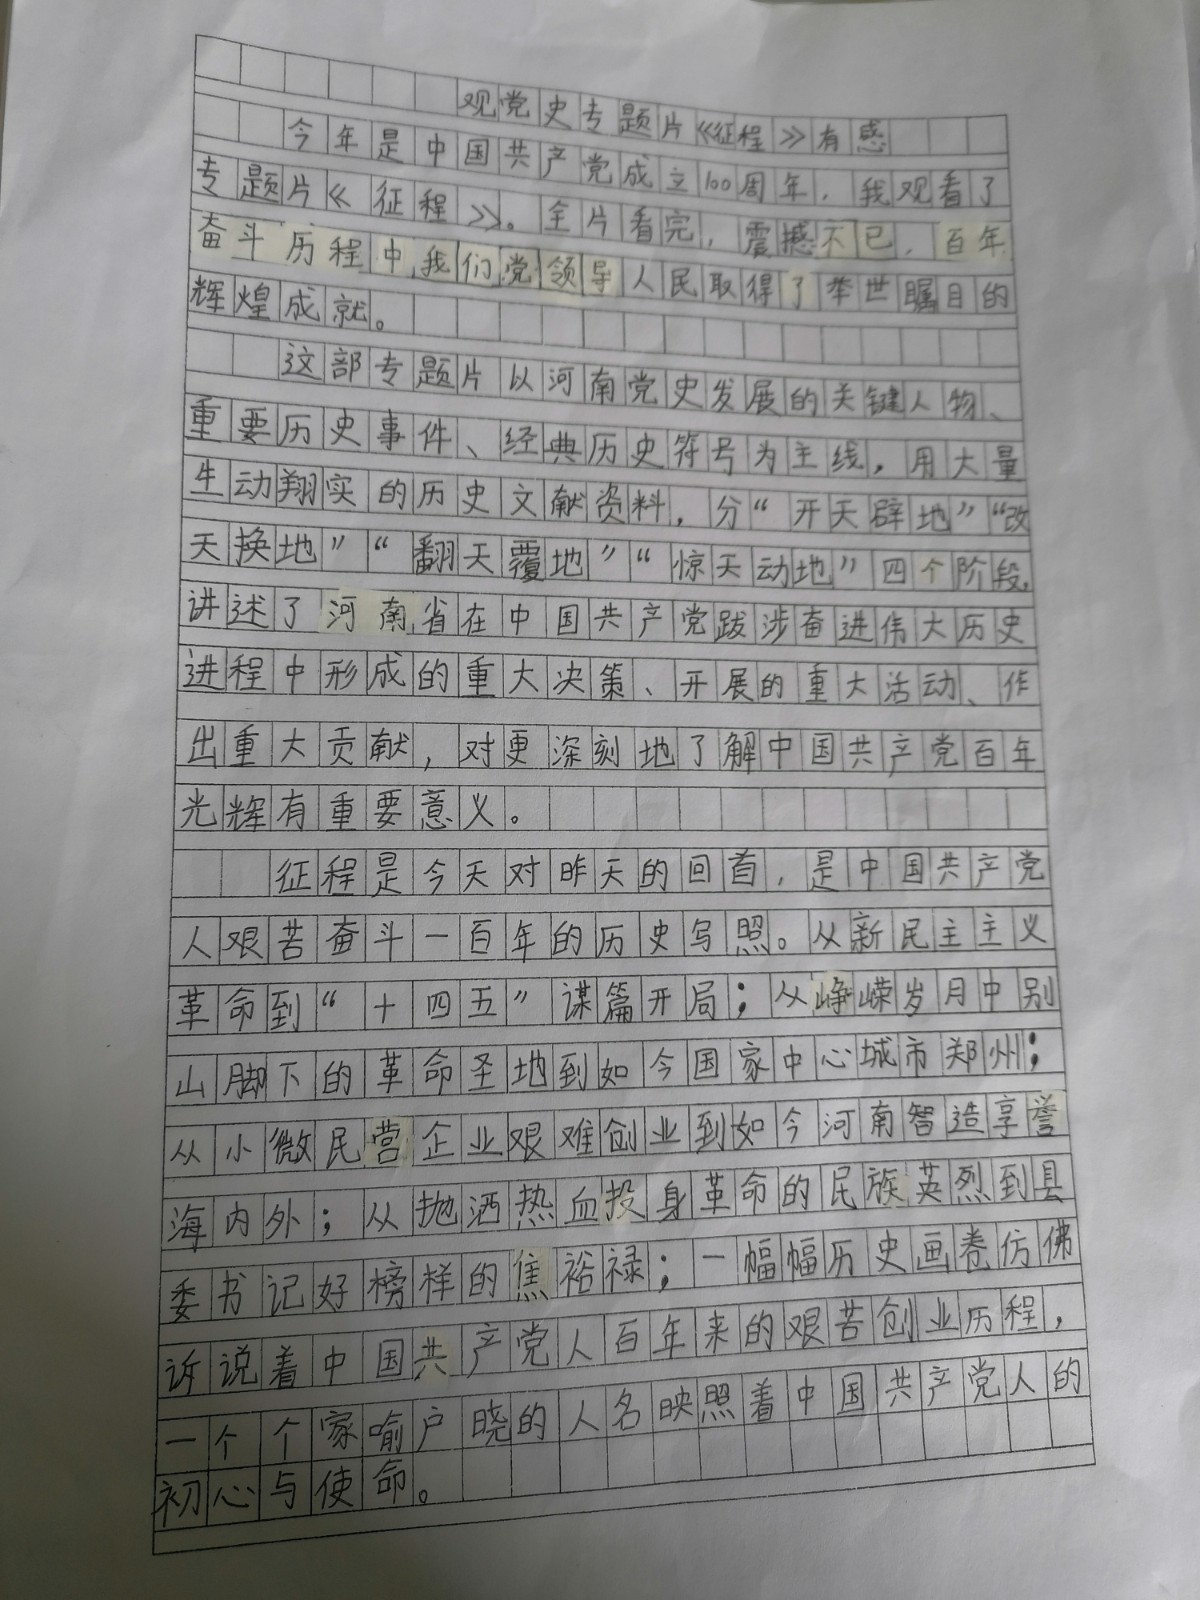 观党史专题片《征程》有感
今年是中国共产党成立100周年，我观看了
专题片《征程》。全片看完，震撼不已，百年
奋斗历程中，我们党领导人民取得了举世瞩目的
辉煌成就。
这部专题片以河南党史发展的关键人物、
重要历史事件、经典历史符号为主线，用大量
生动翔实的历史文献资料，分“开天辟地”“改
天换地”“翻天覆地”“惊天动地”四个阶段，
讲述了河南省在中国共产党跋涉奋进伟大历史
进程中形成的重大决策、开展的重大活动、作
出重大贡献，对更深刻地了解中国共产党百年
光辉有重要意义。
征程是今天对昨天的回首，是中国共产党
人艰苦奋斗一百年的历史写照。从新民主主义
革命到“十四五”谋篇开局；从峥嵘岁月中别
山脚下的革命圣地到如今国家中心城市郑州；
从小微民营企业艰难创业到如今河南智造享誉
海内外；从抛洒热血投身革命的民族英烈到县
委书记好榜样的焦裕禄；一幅幅历史画卷仿佛
诉说着中国共产党人百年来的艰苦创业历程，
一个个家喻户晓的人名映照着中国共产党人的
初心与使命。